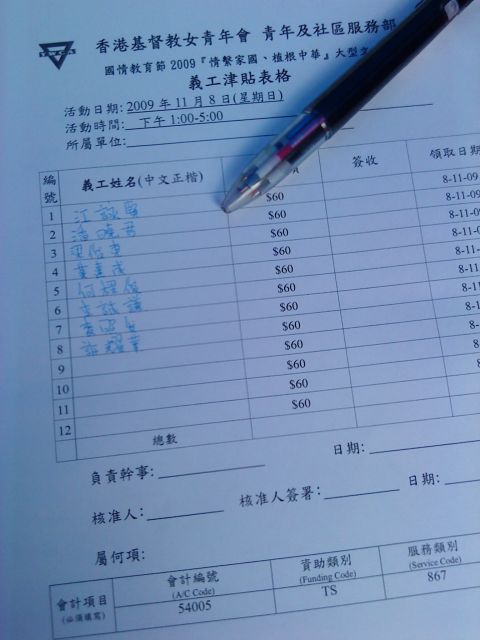 香港基督教女青年會 青年及社區服務部
國情教育節 2009『情繫家國、植根中華』大型文
義工津貼表格
活動日期: 2009 年 11 月 8 日(星期日)
活動時間: 下午 1:00-5:00
所屬單位:
編號 義工姓名(中文正楷) 簽收 領取日期
1 $60 8-11-09
2 $60 8-11-09
3 $60 8-11-09
4 $60 8-11-0
5 $60 8-11-0
6 $60 8-11-
7 $60 8-11
8 $60 8-1
9 $60 8-
10 $60
11 $60
12 $60
總數
負責幹事: 日期:
核准人: 核准人簽署: 日期:
屬何項:
會計項目 (必須填寫) 會計編號 (A/C Code) 資助類別 (Funding Code) 服務類別 (Service Code)
54005 TS 867